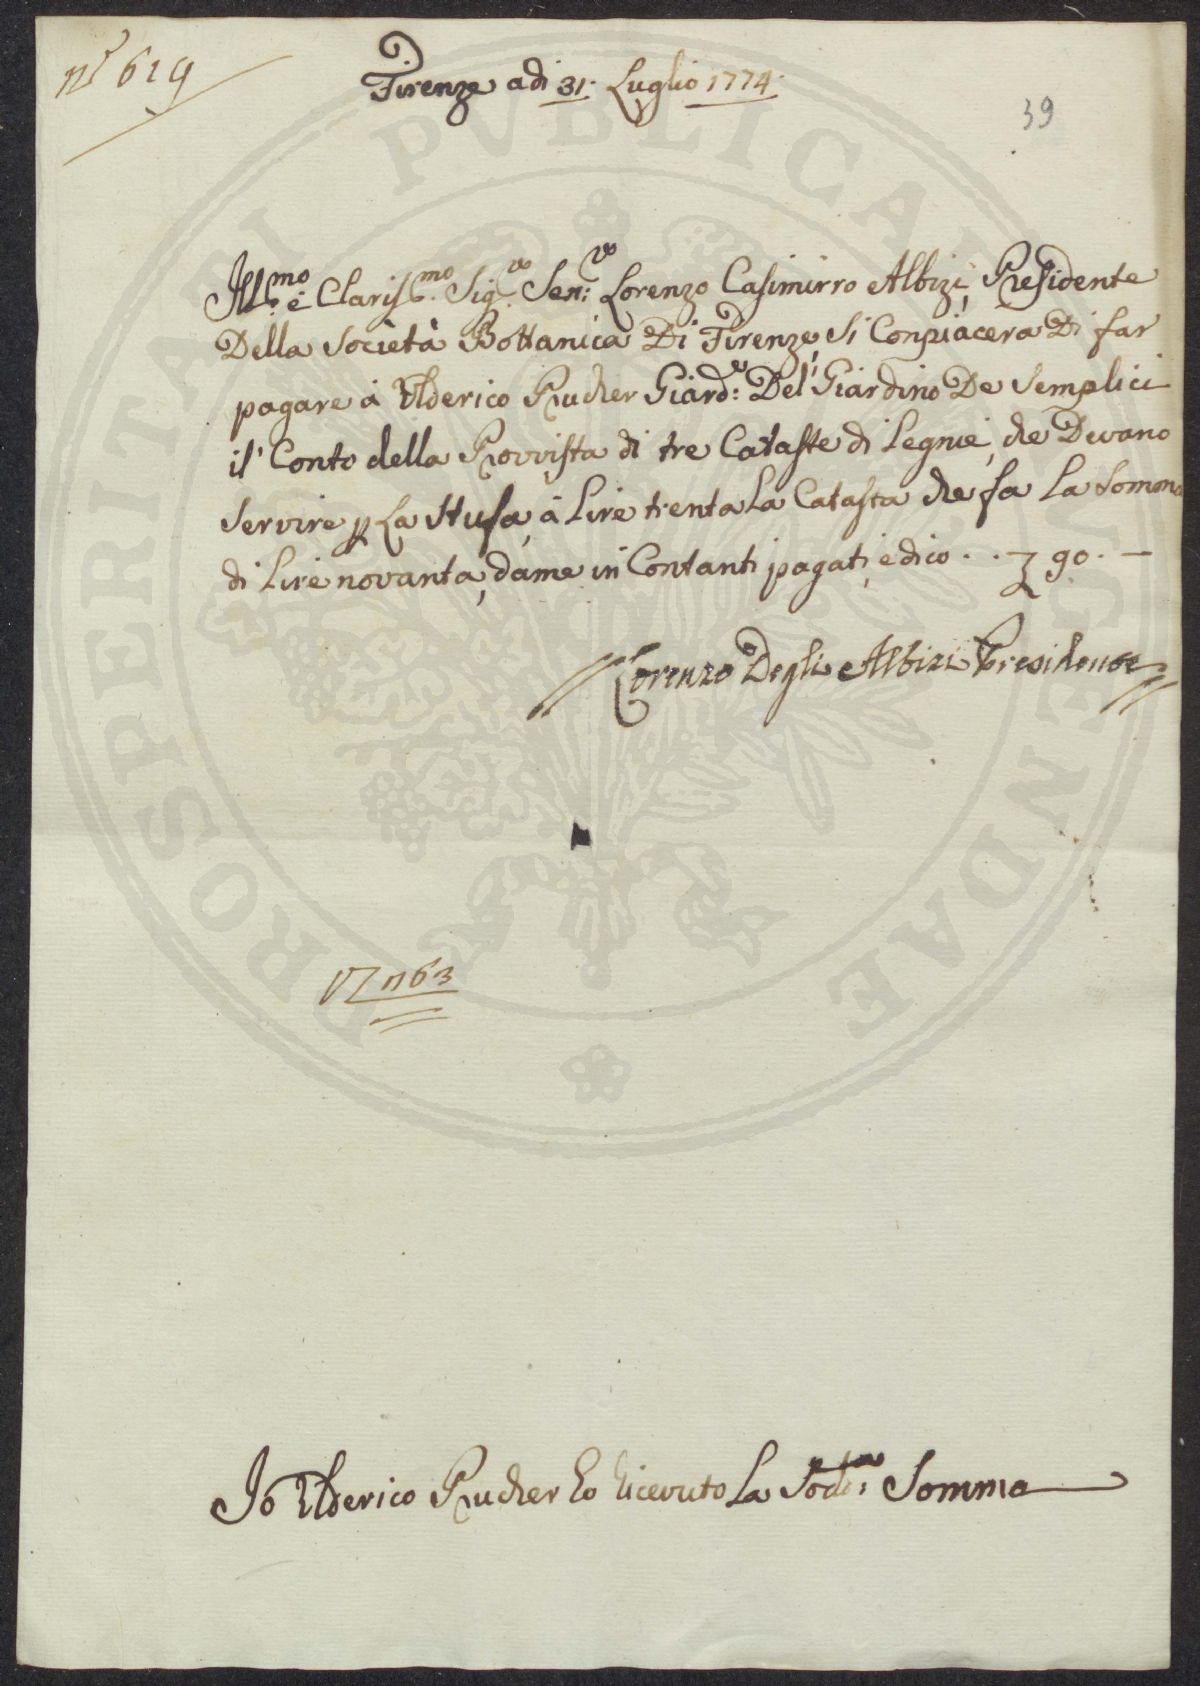 nº 619
Firenze adi 31. Luglio 1774.
39
Ill.mo é Clariss.mo Sig.re Sen.re Lorenzo Casimirro Albizi, Presidente
Della Società Bottanica Di Firenze, Si Conpiacera Di far
pagare á Ulderico Prucher Giard.e Del' Giardino De Semplici
il' Conto della Provvista di tre Cataste di Legnie, che Devano
Servire p La Stufa, á Lire trenta La Catasta che fa La Somma
di Lire novanta, da me in Contanti pagati, e dico . . . 90. —
Lorenzo Degli Albizi Presidente
63
Io Ulderico Prucher ho ricevuto La Sod.a Somma
PROSPERITATI PVBLICAE AVGENDAE